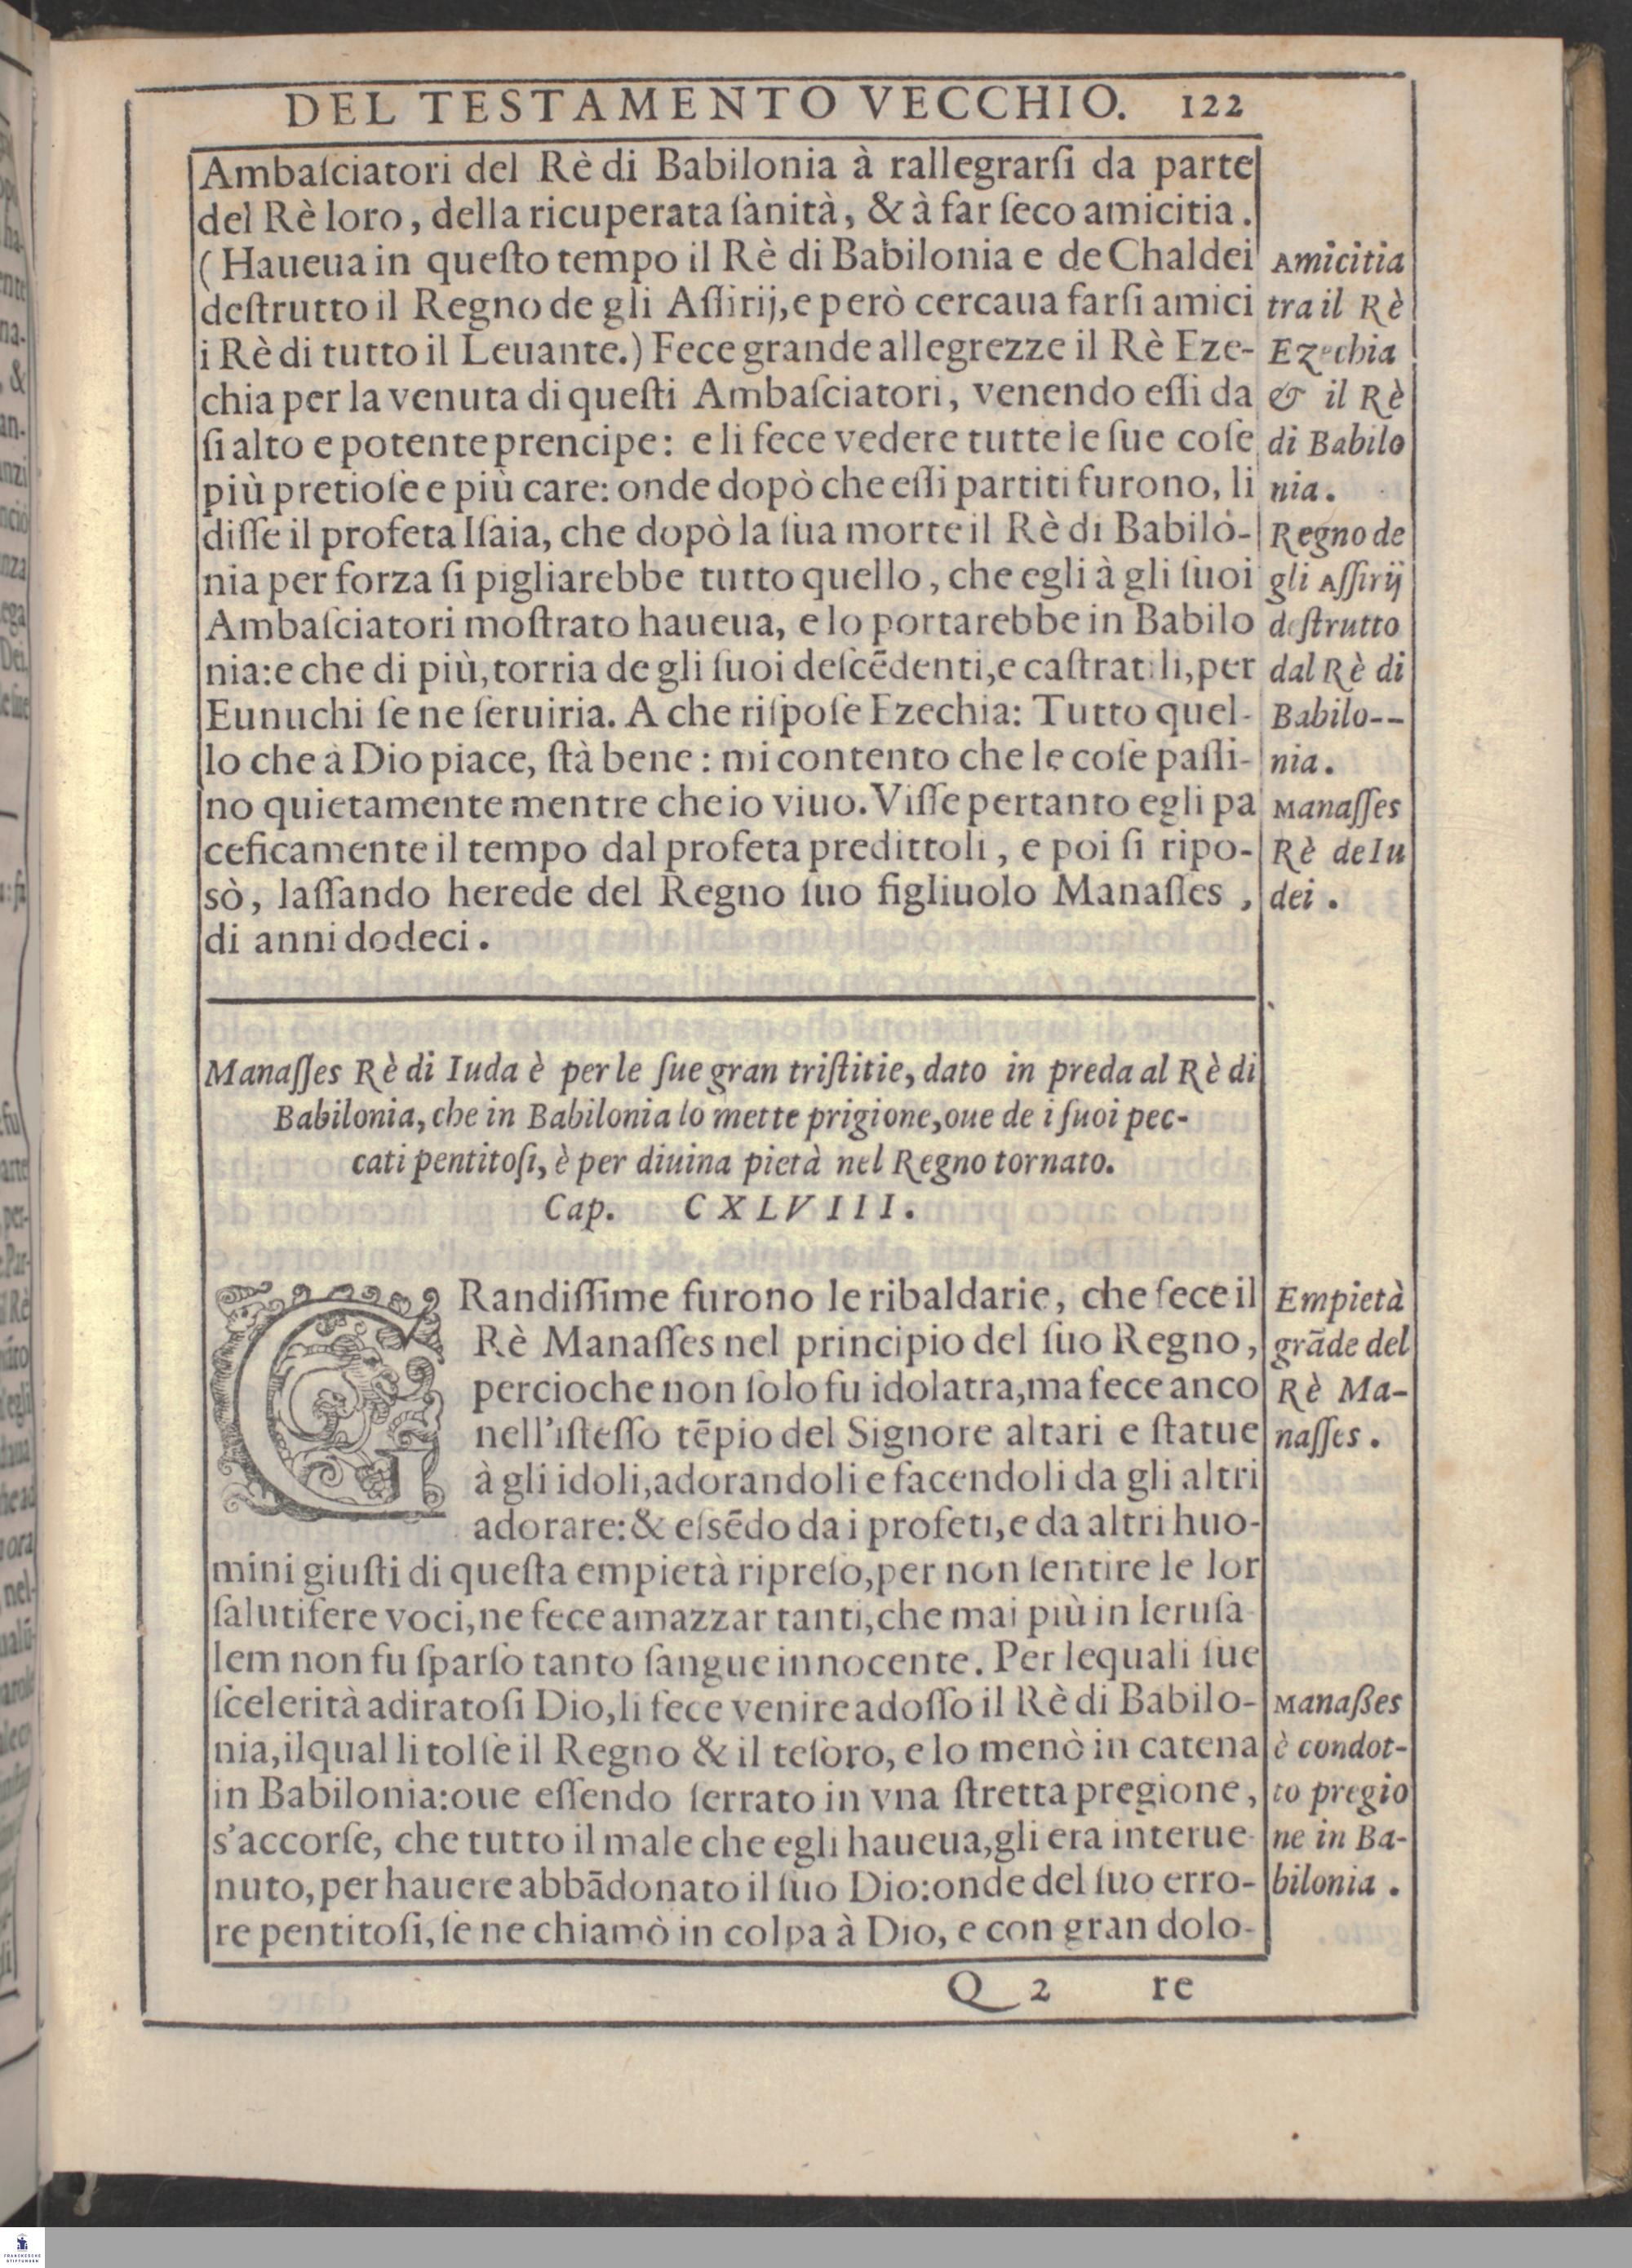 DEL TESTAMENTO VECCHIO. 122
Ambaſciatori del Rè di Babilonia à rallegrarſi da parte
del Rè loro, della ricuperata ſanità, & à far ſeco amicitia.
(Haueua in queſto tempo il Rè di Babilonia e de Chaldei
deſtrutto il Regno de gli Aſſirij, e però cercaua farſi amici
i Rè di tutto il Leuante.) Fece grande allegrezze il Rè Eze-
chia per la venuta di queſti Ambaſciatori, venendo eſſi da
ſi alto e potente prencipe: e li fece vedere tutte le ſue coſe
più pretioſe e più care: onde dopò che eſſi partiti furono, li
diſſe il profeta Iſaia, che dopò la ſua morte il Rè di Babilo-
nia per forza ſi pigliarebbe tutto quello, che egli à gli ſuoi
Ambaſciatori moſtrato haueua, e lo portarebbe in Babilo
nia: e che di più, torria de gli ſuoi deſcēdenti, e caſtratili, per
Eunuchi ſe ne ſeruiria. A che riſpoſe Ezechia: Tutto quel-
lo che à Dio piace, ſtà bene: mi contento che le coſe paſſi-
no quietamente mentre che io viuo. Viſſe pertanto egli pa
ceficamente il tempo dal profeta predittoli, e poi ſi ripo-
sò, laſſando herede del Regno ſuo figliuolo Manaſſes,
di anni dodeci.
Amicitia
tra il Rè
Ezechia
& il Rè
di Babilo
nia.
Regno de
gli Aſſirij
deſtrutto
dal Rè di
Babilo--
nia.
Manaſſes
Rè de Iu
dei.
Manaſſes Rè di Iuda è per le ſue gran triſtitie, dato in preda al Rè di
Babilonia, che in Babilonia lo mette prigione, oue de i ſuoi pec-
cati pentitoſi, è per diuina pietà nel Regno tornato.
Cap. CXLVIII.
GRandiſſime furono le ribaldarie, che fece il
Rè Manaſſes nel principio del ſuo Regno,
percioche non ſolo fu idolatra, ma fece anco
nell'iſteſſo tēpio del Signore altari e ſtatue
à gli idoli, adorandoli e facendoli da gli altri
adorare: & eſsēdo da i profeti, e da altri huo-
mini giuſti di queſta empietà ripreſo, per non ſentire le lor
ſalutifere voci, ne fece amazzar tanti, che mai più in Ieruſa
lem non fu ſparſo tanto ſangue innocente. Per lequali ſue
ſcelerità adiratoſi Dio, li fece venire adoſſo il Rè di Babilo-
nia, ilqual li tolſe il Regno & il teſoro, e lo menò in catena
in Babilonia: oue eſſendo ſerrato in vna ſtretta pregione,
s'accorſe, che tutto il male che egli haueua, gli era interue-
nuto, per hauere abbādonato il ſuo Dio: onde del ſuo erro-
re pentitoſi, ſe ne chiamò in colpa à Dio, e con gran dolo-
Empietà
grāde del
Rè Ma-
naſſes.
Manaßes
è condot-
to pregio
ne in Ba-
bilonia.
Q 2 re
FRANCKESCHE
STIFTUNGEN